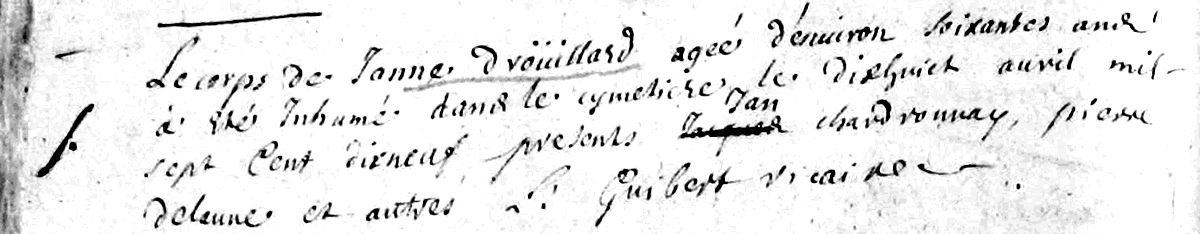 Le corps de Janne Droüillard ageé d'enuiron soixantes ans
à eté Inhumé dans le cymetiere le dixhuict auril mil
sept Cent dixneuf presents Jacques Jan chardronnay, pierre
delaune et autres L. Guibert vicaire